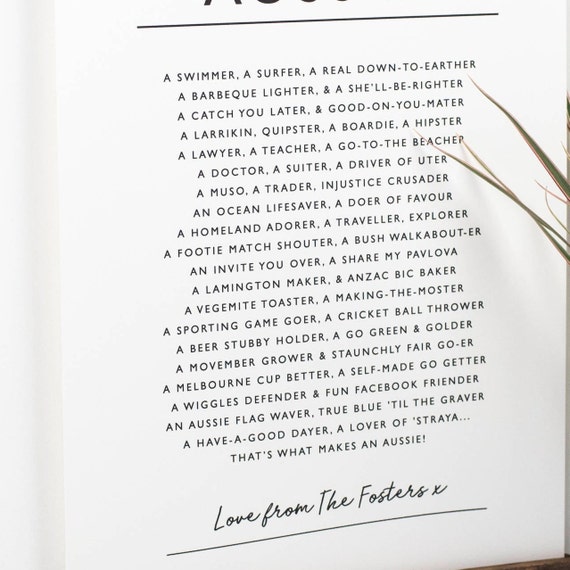 A SWIMMER, A SURFER, A REAL DOWN-TO-EARTHER
A BARBEQUE LIGHTER, & A SHE'LL-BE-RIGHTER
A CATCH YOU LATER, & GOOD-ON-YOU-MATER
A LARRIKIN, QUIPSTER, A BOARDIE, A HIPSTER
A LAWYER, A TEACHER, A GO-TO-THE BEACHER
A DOCTOR, A SUITER, A DRIVER OF UTER
A MUSO, A TRADER, INJUSTICE CRUSADER
AN OCEAN LIFESAVER, A DOER OF FAVOUR
A HOMELAND ADORER, A TRAVELLER, EXPLORER
A FOOTIE MATCH SHOUTER, A BUSH WALKABOUT-ER
AN INVITE YOU OVER, A SHARE MY PAVLOVA
A LAMINGTON MAKER, & ANZAC BIC BAKER
A VEGEMITE TOASTER, A MAKING-THE-MOSTER
A SPORTING GAME GOER, A CRICKET BALL THROWER
A BEER STUBBY HOLDER, A GO GREEN & GOLDER
A MOVEMBER GROWER & STAUNCHLY FAIR GO-ER
A MELBOURNE CUP BETTER, A SELF-MADE GO GETTER
A WIGGLES DEFENDER & FUN FACEBOOK FRIENDER
AN AUSSIE FLAG WAVER, TRUE BLUE 'TIL THE GRAVER
A HAVE-A-GOOD DAYER, A LOVER OF 'STRAYA...
THAT'S WHAT MAKES AN AUSSIE!
Love from The Fosters x